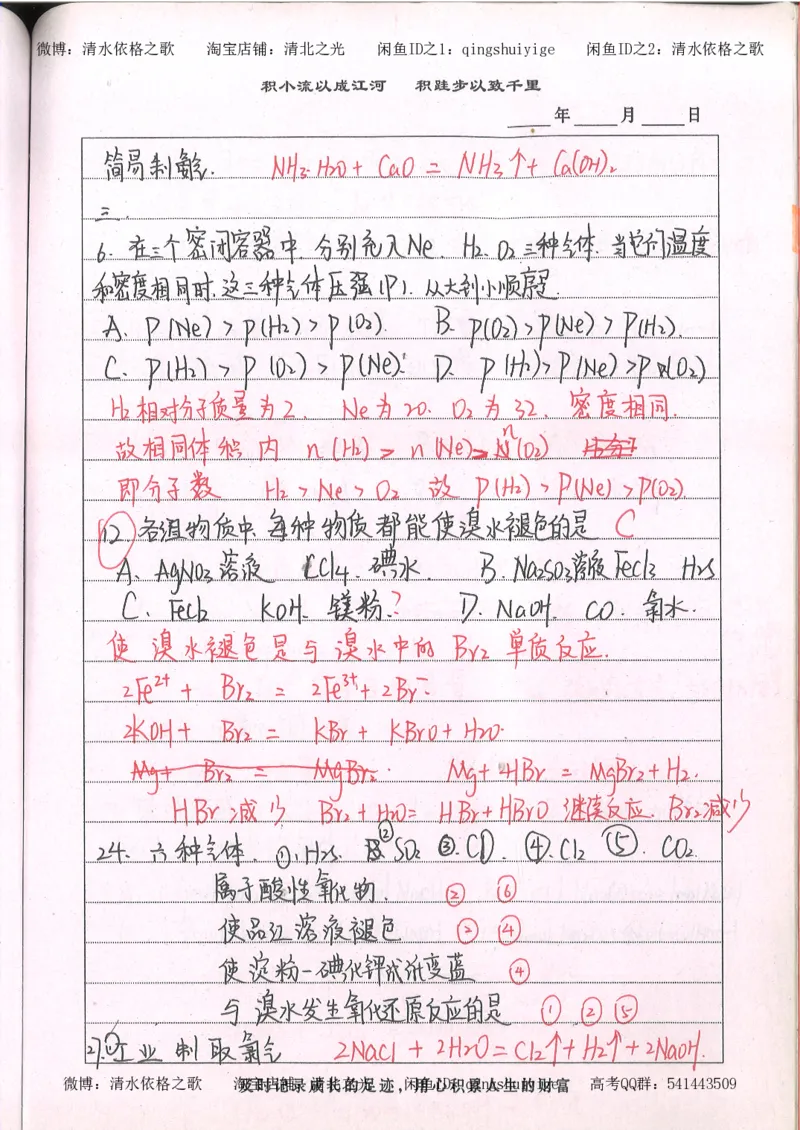 微博：清水依格之歌 淘宝店铺：清北之光 闲鱼ID之1：qingshuiyige 闲鱼ID之2：清水依格之歌
积小流以成江河 积跬步以致千里
年 月 日
简易制氨气. NH₃·H₂O + CaO = NH₃↑ + Ca(OH)₂
三.
6. 在三个密闭容器中. 分别充入Ne. H₂. O₂ 三种气体. 当它们温度
和密度相同时, 这三种气体压强(P). 从大到小顺序是
A. P(Ne) > P(H₂) > P(O₂). B. P(O₂) > P(Ne) > P(H₂).
C. P(H₂) > P(O₂) > P(Ne). D. P(H₂) > P(Ne) > P(O₂)
H₂相对分子质量为2. Ne为20. O₂为32. 密度相同.
故相同体积内 n(H₂) > n(Ne) > n(O₂)
即分子数 H₂ > Ne > O₂ 故 P(H₂) > P(Ne) > P(O₂).
12. 各组物质中. 每种物质都能使溴水褪色的是 C
A. AgNO₃溶液 CCl₄. 碘水. B. Na₂SO₃溶液 FeCl₃ H₂S
C. FeCl₂ KOH. 镁粉? D. NaOH. CO. 氯水.
使溴水褪色是与溴水中的Br₂单质反应.
2Fe²⁺ + Br₂ = 2Fe³⁺ + 2Br⁻
2KOH + Br₂ = KBr + KBrO + H₂O.
Mg + Br₂ = MgBr₂. Mg + 2HBr = MgBr₂ + H₂.
HBr减少 Br₂ + H₂O = HBr + HBrO 继续反应. Br₂减少
24. 六种气体. ①. H₂S. ② SO₂ ③. Cl). ④. Cl₂ ⑤. CO₂
属于酸性氧化物. ② ⑥
使品红溶液褪色 ② ④
使淀粉-碘化钾试纸变蓝 ④
与溴水发生氧化还原反应的是 ① ② ⑤
27. ① 工业制取氯气 2NaCl + 2H₂O = Cl₂↑ + H₂↑ + 2NaOH.
及时记录成长的足迹，用心积累人生的财富
微博：清水依格之歌 淘宝店铺：清北之光 闲鱼ID：qingshuiyige 高考QQ群：541443509